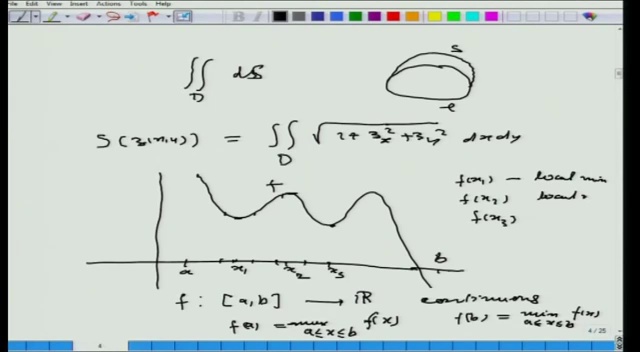 Edit View Insert Actions Tools Help
∬ dS
D
S
S(z(x,y)) = ∬ √(1+z_x²+z_y²) dxdy
D
f
f(x₁) – local min
f(x₂) local
f(x₃)
a x₁ x₂ x₃ b
f : [a,b] → ℝ continuous
f(a) = max f(x) f(b) = min f(x)
a≤x≤b a≤x≤b
4 / 25
4